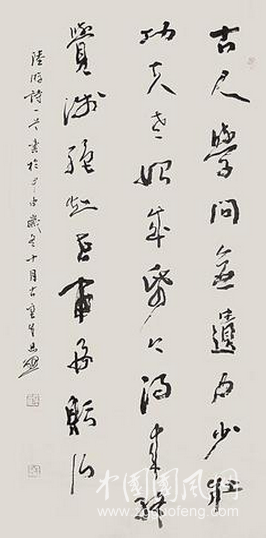 古人學問無遺力少壯
功夫老始成紙上得來終
覺淺絕知此事要躬行
陸游詩一首書於歲冬十月古
中国国风网
www.zgguofeng.com